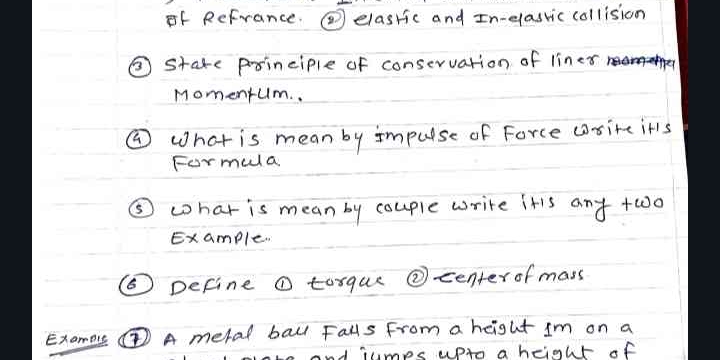 of Refrance. ② elastic and In-elastic collision
③ State principle of conservation of liner
Momentum..
④ what is mean by impulse of Force write it's
Formula
⑤ what is mean by couple write it's any two
Example..
⑥ Define ① torque ② center of mass
Example ⑦ A metal ball Falls From a height 1m on a
and jumps upto a height of